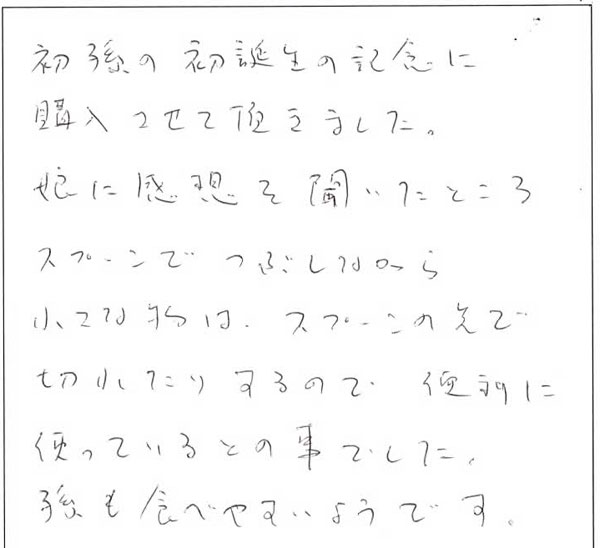 初孫の初誕生の記念に
購入させて頂きました。
娘に感想を聞いたところ
スプーンでつぶしながら
小さな物は、スプーンの先で
切ったりするので 便利に
使っているとの事でした。
孫も食べやすいようです。